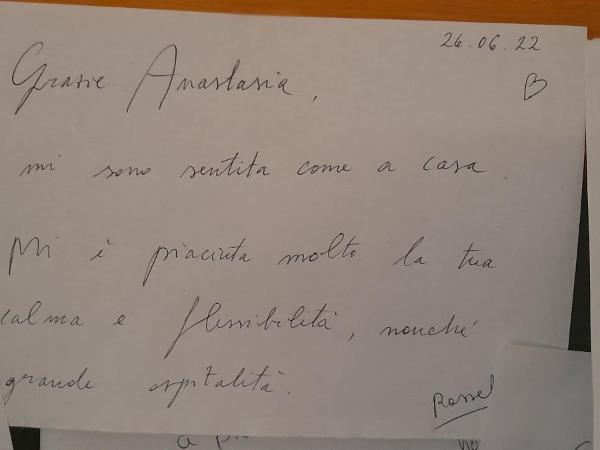 26.06.22
Grazie Anastasia,
mi sono sentita come a casa.
Mi è piaciuta molto la tua
calma e flessibilità, nonché
grande ospitalità.